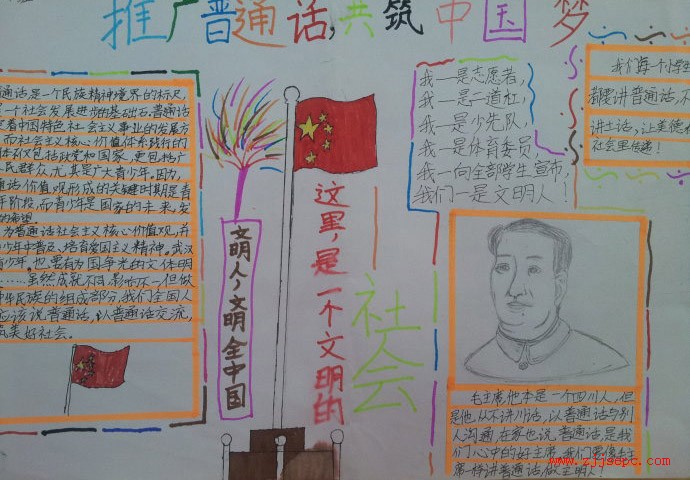 推广普通话,共筑中国梦
通话是一个民族精神境界的标尺,
一个社会发展进步的基础石。普通话
着中国特色社会主义事业的发展方
而社会主义核心价值体系践行的
体不仅包括政党和国家,更包括广
人民群众,尤其是广大青少年。因为,
话价值观形成的关键时期是青
年阶段,而青少年是国家的未来,发
的希望
为普通话社会主义核心价值观,并
少年中普及、培育爱国主义精神。武汉
青少年。也出有为国争光的文体明
……虽然成就不同,影响不一但做
华民族的组成部分,我们全国人
应该说普通话,以普通话交流,
筑美好社会。
文明人,文明全中国
这里,是一个文明的
社会
我一是志愿者,
我一是二道杠,
我一是少先队,
我一是体育委员,
我一向全部学生宣布,
我们一是文明人!
我们每个小学生
都要讲普通话,不
讲土话,让美德在
社会里传递!
毛主席,他本是一个四川人,但
是他从不讲川话,以普通话与别
人沟通,在家也说普通话,是我
们心中的好主席,我们要像毛主
席一样讲普通话,做主明人!
www.zjjsepc.com